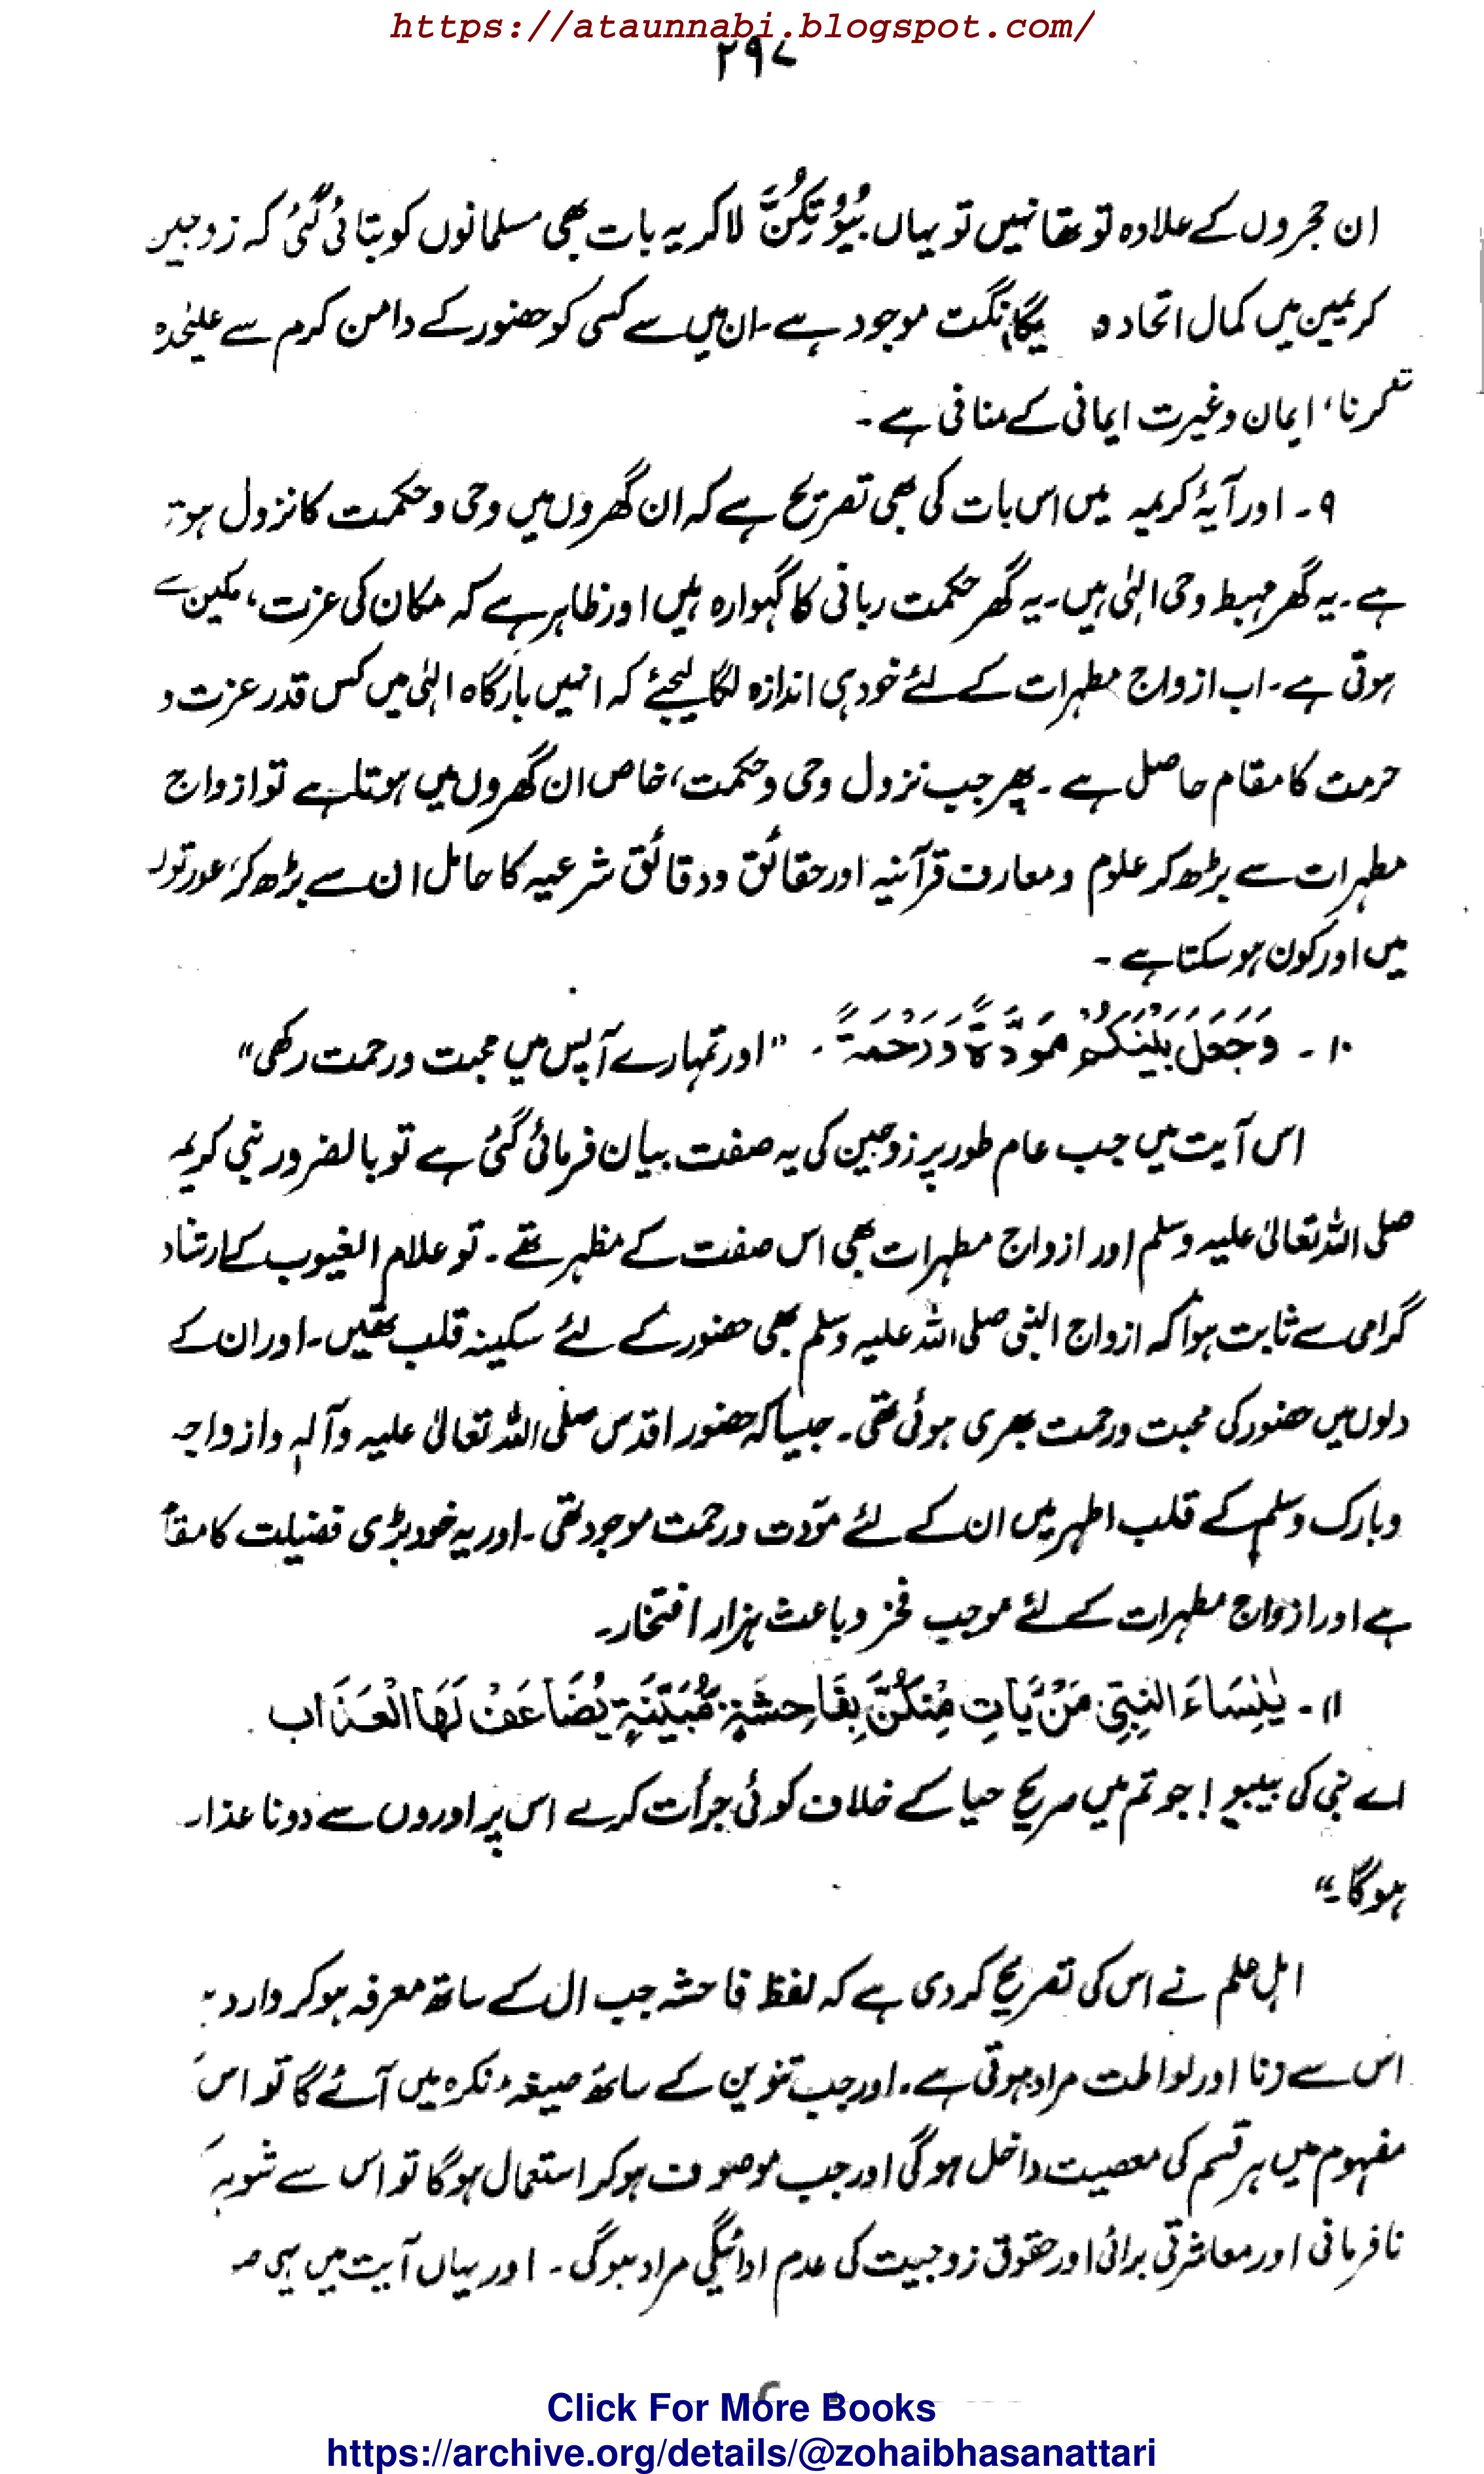 https://ataunnabi.blogspot.com/
۲۹۷
ان حجروں کے علاوہ تو تھا نہیں تو یہاں بُيُوْتِكُنَّ لا کر یہ بات بھی مسلمانوں کو بتائی گئی کہ زوجین
کریمین میں کمال اتحاد و یگانگت موجود ہے۔ ان میں سے کسی کو حضور کے دامن کرم سے علیٰحدہ
کرنا، ایمان و غیرت ایمانی کے منافی ہے۔
۹۔ اور آیۂ کریمہ میں اس بات کی بھی تصریح ہے کہ ان گھروں میں وحی و حکمت کا نزول ہوتا
ہے۔ یہ گھر مہبط وحی الہٰی ہیں۔ یہ گھر حکمت ربانی کا گہوارہ ہیں اور ظاہر ہے کہ مکان کی عزت، مکین سے
ہوتی ہے۔ اب ازواج مطہرات کے لئے خود ہی اندازہ لگا لیجئے کہ انہیں بارگاہ الہٰی میں کس قدر عزت و
حرمت کا مقام حاصل ہے۔ پھر جب نزول وحی و حکمت، خاص ان گھروں میں ہوتا ہے تو ازواج
مطہرات سے بڑھ کر علوم و معارف قرآنیہ اور حقائق و دقائق شرعیہ کا حامل ان سے بڑھ کر، عورتوں
میں اور کون ہو سکتا ہے۔
۱۰۔ وَجَعَلَ بَيْنَكُمْ مَوَدَّةً وَرَحْمَةً۔ "اور تمہارے آپس میں محبت و رحمت رکھی"
اس آیت میں جب عام طور پر زوجین کی یہ صفت بیان فرمائی گئی ہے تو بالضرور نبی کریم
صلی اللہ تعالیٰ علیہ وسلم اور ازواج مطہرات بھی اس صفت کے مظہر تھے۔ تو علام الغیوب کے ارشاد
گرامی سے ثابت ہوا کہ ازواج النبی صلی اللہ علیہ وسلم بھی حضور کے لئے سکینہ قلب تھیں۔ اور ان کے
دلوں میں حضور کی محبت و رحمت بھری ہوئی تھی۔ جیسا کہ حضور اقدس صلی اللہ تعالیٰ علیہ وآلہٖ وازواجہ
وبارک وسلم کے قلب اطہر میں ان کے لئے مودّت و رحمت موجود تھی۔ اور یہ خود بڑی فضیلت کا مقام
ہے اور ازواج مطہرات کے لئے موجب فخر و باعث ہزار افتخار۔
۱۱۔ يٰنِسَاءَ النَّبِيِّ مَنْ يَّاْتِ مِنْكُنَّ بِفَاحِشَةٍ مُّبَيِّنَةٍ يُضَاعَفْ لَهَا الْعَذَابُ
اے نبی کی بیبیو! جو تم میں صریح حیا کے خلاف کوئی جرأت کرے اس پر اوروں سے دونا عذاب
ہوگا۔"
اہل علم نے اس کی تصریح کر دی ہے کہ لفظ فاحشہ جب ال کے ساتھ معرفہ ہو کر وارد
اس سے زنا اور لواطت مراد ہوتی ہے۔ اور جب تنوین کے ساتھ صیغہ نکرہ میں آئے گا تو اس
مفہوم میں ہر قسم کی معصیت داخل ہوگی اور جب موصوف ہو کر استعمال ہوگا تو اس سے شوہر
نافرمانی اور معاشرتی برائی اور حقوق زوجیت کی عدم ادائیگی مراد ہوگی۔ اور یہاں آیت میں یہی
Click For More Books
https://archive.org/details/@zohaibhasanattari